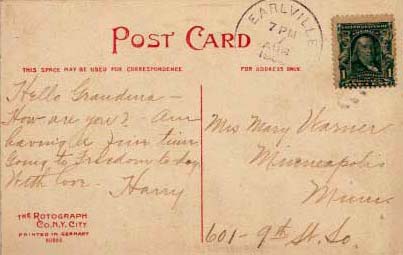 POST CARD
THIS SPACE MAY BE USED FOR CORRESPONDENCE.
FOR ADDRESS ONLY.
EARLVILLE
7 PM
AUG
1
Hello Grandma –
How are you? – Am
having a fine time
Going to Freedom to day
With love. Harry
Mrs Mary Warner
Minneapolis
Minn
601 - 9th St. So.
THE ROTOGRAPH
CO. N.Y. CITY
PRINTED IN GERMANY